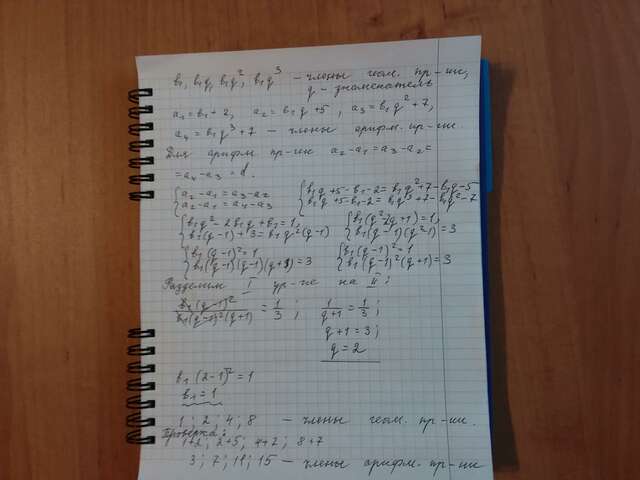 b₁, b₁q, b₁q², b₁q³ – члены геом. пр-ии,
q – знаменатель
a₁=b₁+2, a₂=b₁q+5, a₃=b₁q²+7,
a₄=b₁q³+7 – члены арифм. пр-ии.
Для арифм пр-ии a₂-a₁=a₃-a₂=
=a₄-a₃=d.
{a₂-a₁=a₃-a₂ {b₁q+5-b₁-2=b₁q²+7-b₁q-5
{a₂-a₁=a₄-a₃ {b₁q+5-b₁-2=b₁q³+7-b₁q²-7
{b₁q²-2b₁q+b₁=1, {b₁(q²-2q+1)=1,
{b₁(q-1)+3=b₁q²(q-1) {b₁(q-1)(q²-1)=3
{b₁(q-1)²=1 {b₁(q-1)²=1
{b₁(q-1)(q-1)(q+1)=3 {b₁(q-1)²(q+1)=3
Разделим I ур-ие на II:
b₁(q-1)²/b₁(q-1)²(q+1) = 1/3; 1/q+1 = 1/3;
q+1=3;
q=2
b₁(2-1)²=1
b₁=1
1; 2; 4; 8 – члены геом. пр-ии.
Проверка:
1+2; 2+5; 4+7; 8+7
3; 7; 11; 15 – члены арифм. пр-ии